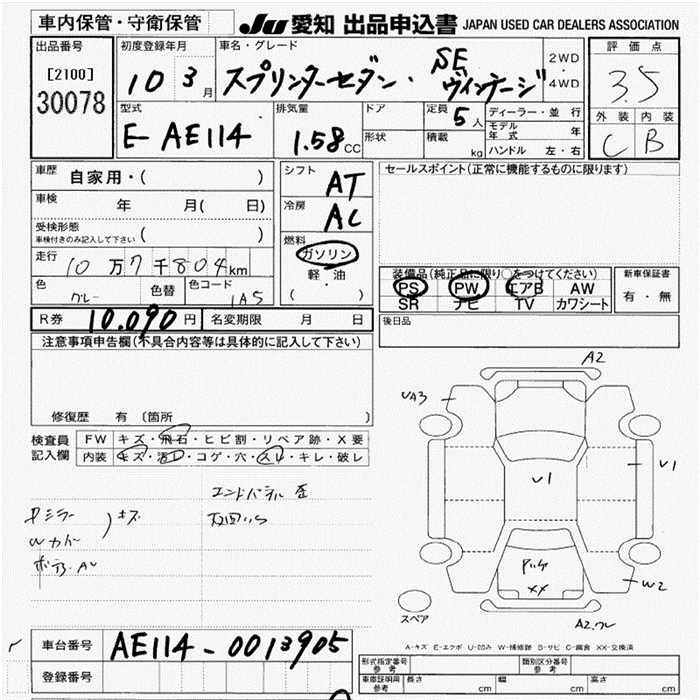 車内保管・守衛保管 JU 愛知 出品申込書 JAPAN USED CAR DEALERS ASSOCIATION
出品番号 初度登録年月 車名・グレード 評価点
[2100] 10 3月 スプリンターセダン・SE ヴィンテージ 2WD・4WD 3.5
30078
型式 排気量 ドア 定員 5人 ディーラー・並行 外装 内装
E-AE114 1.58CC 形状 積載 kg モデル年式 年 C B
ハンドル 左・右
車歴 自家用・( ) シフト AT セールスポイント(正常に機能するものに限ります)
車検 年 月( 日) 冷房 AC
受検形態 ( )
車検付きのみ記入して下さい
燃料 ガソリン
走行 10万7千804km 軽・油
装備品(純正品に限り○をつけてください) 新車保証書
色 グレー 色替 色コード 1A5 ( )
PS PW エアB AW 有・無
SR ナビ TV カワシート
R券 10,090円 名変期限 月 日 後日品
注意事項申告欄(不具合内容等は具体的に記入して下さい)
修復歴 有 〔箇所
検査員 FW キズ・飛石・ヒビ割・リペア跡・X要
記入欄 内装 キズ・汚レ・コゲ・穴・スレ・キレ・破レ
A2
UA3
U1
U1
XX
W2
A2
スペア
キズ
A-キズ E-エクボ U-凹み W-補修跡 S-サビ C-腐食 XX-交換済
車台番号 AE114-0013905
登録番号
形式指定番号 参考 類別区分番号 参考
車庫証明用 参考 長さ cm 幅 cm 高さ cm